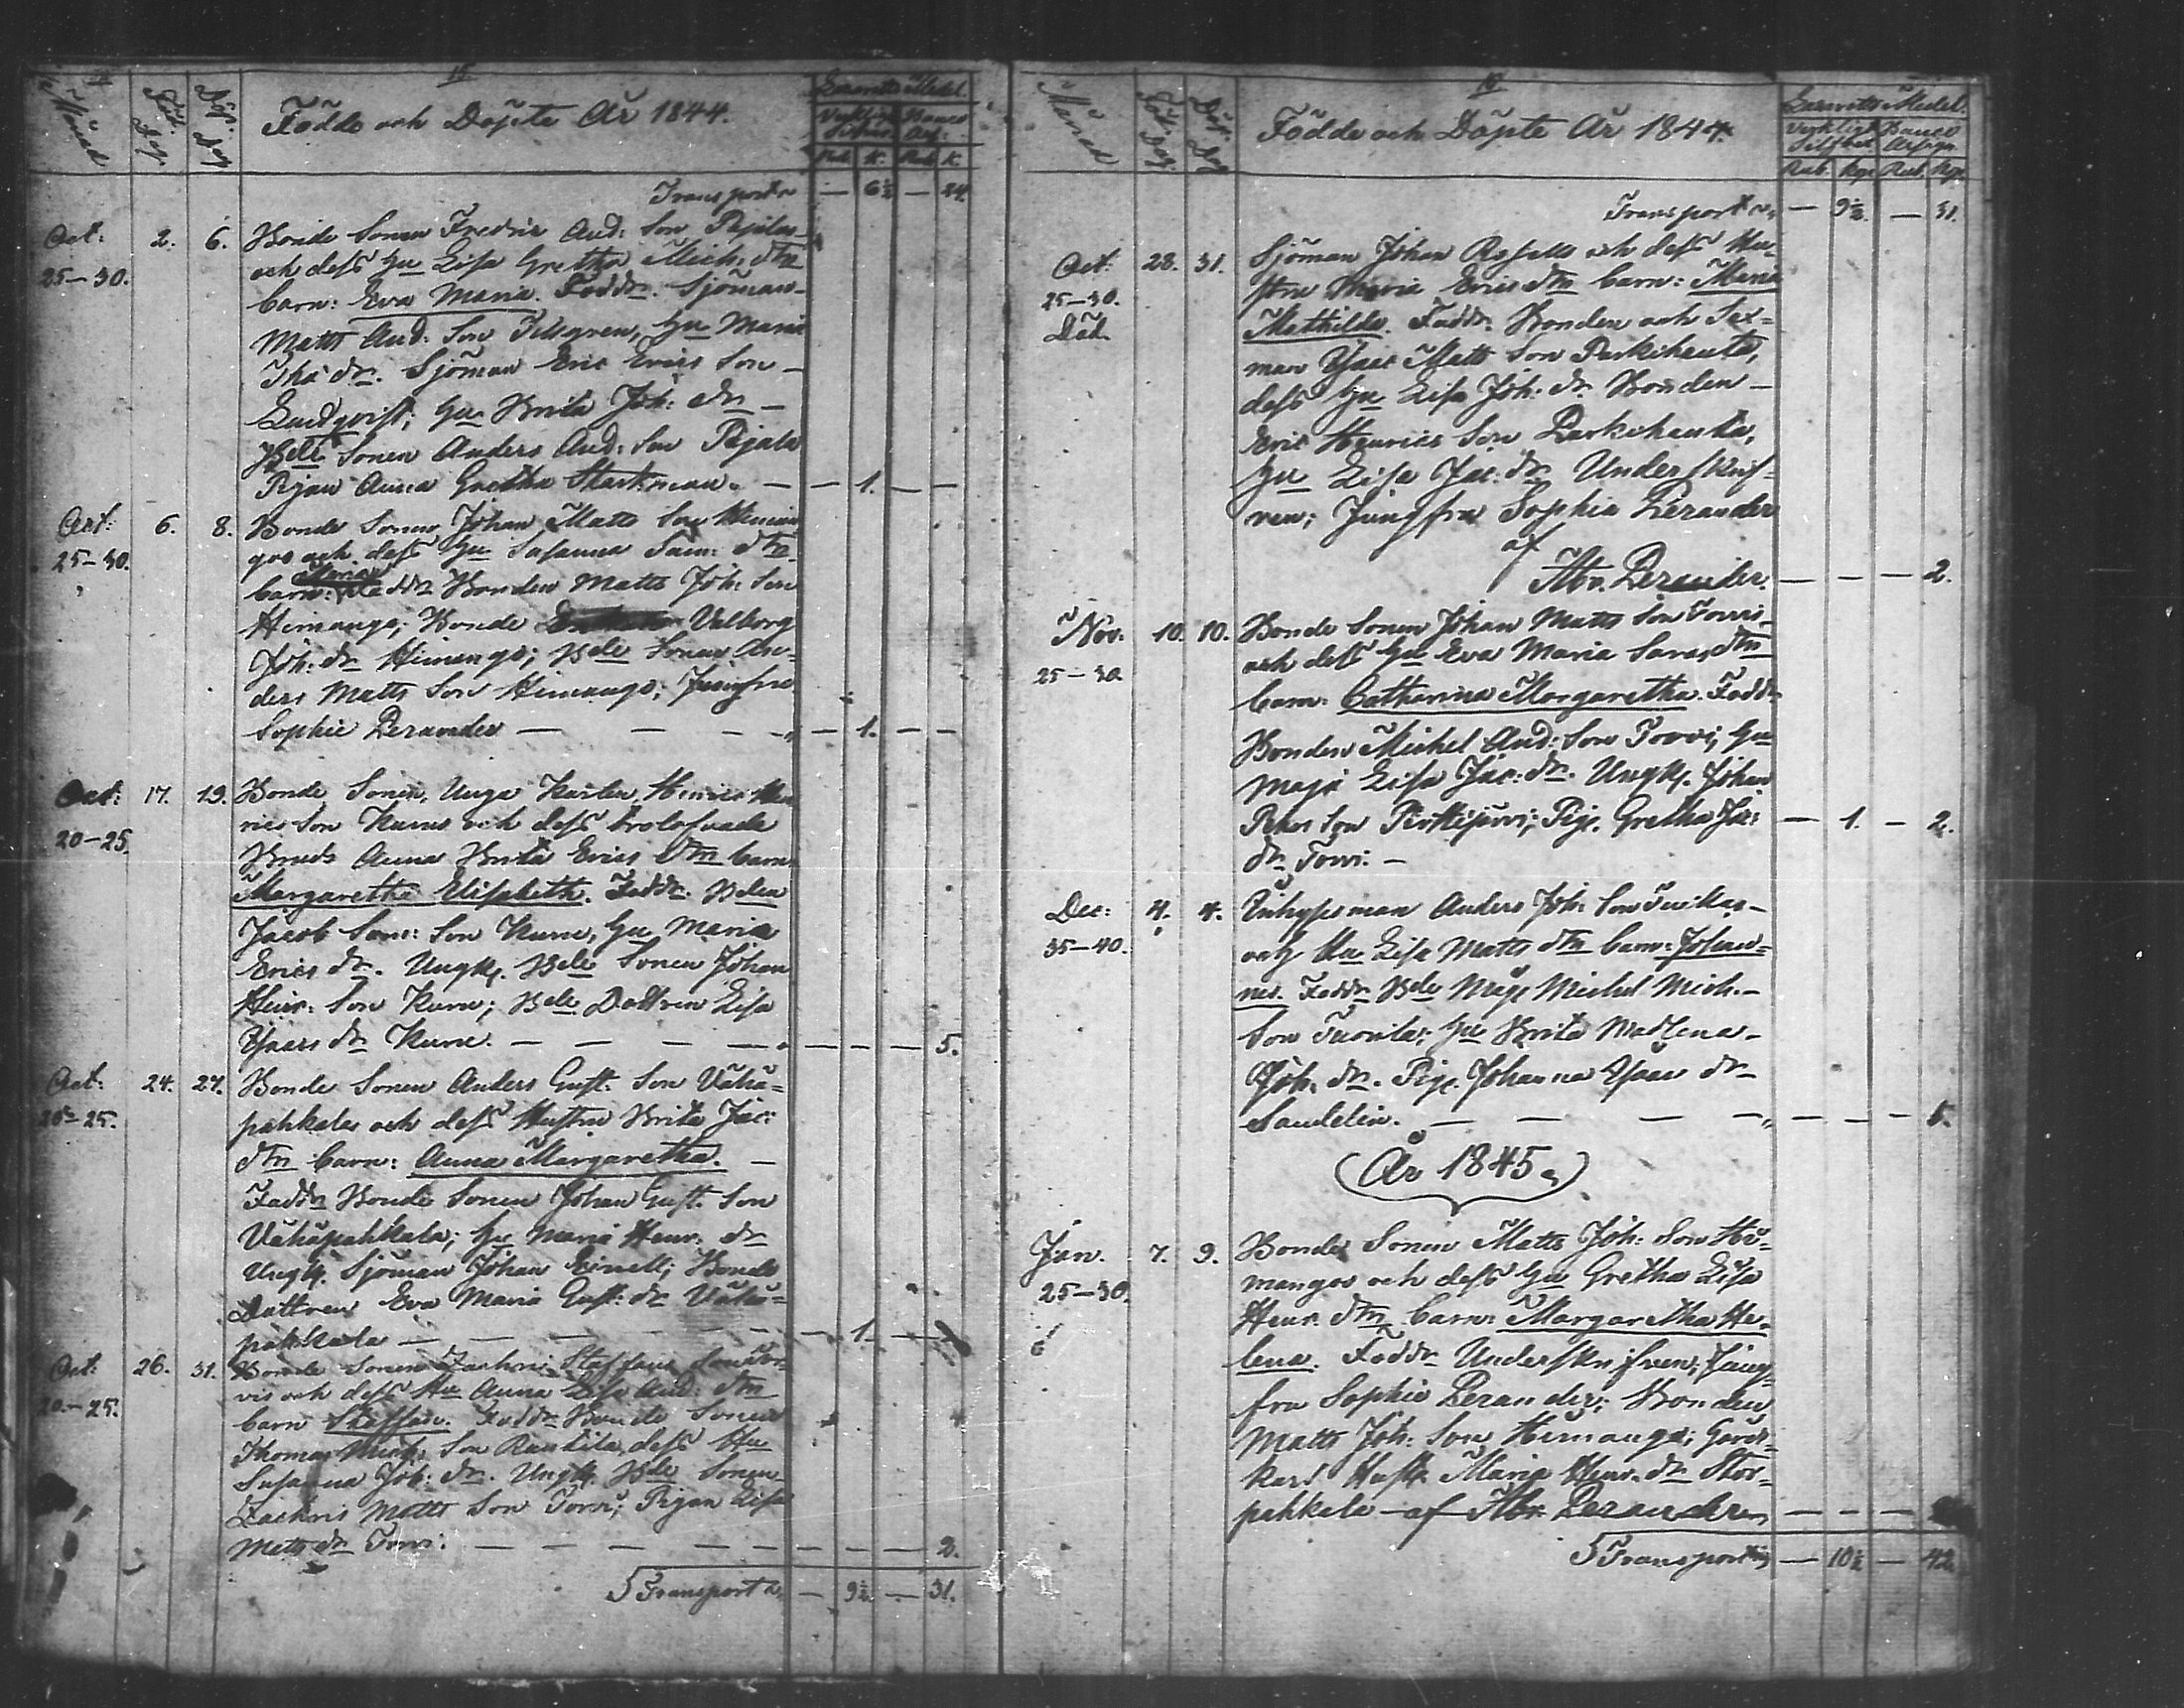 15
Månad
Föd. Dag.
Döp. Dag
Födde och Döpte År 1844.
Lazaretts Medel.
Rub. K. Rub. K.
Transport — 6½ — 24.
Oct: 2. 6. Bonde Sonen Fredric And: Son Pajalas
25–30. och dess Hu Lisa Gretha Mich: dtn
barn: Eva Maria. Faddr. Sjöman
Matts And: Son Tillgren, Hu Maria
dr. Sjöman Eric Erics Son –
Lindqvist; Hu Brita Joh: dn –
Bde Sonen Anders And: Son Pajala
Pigan Anna Gretha Starkman. — — 1. — —
Oct: 6. 8. Bonde Sonen Johan Matts Son Himan-
25–30. gos och dess Hu Susanna Sam: dtn
Maria
barn: Faddr Bonden Matts Joh: Son
Himango; Bonde Valborg
Joh: dr Himango; Bde Sonen An-
ders Matts Son Himango; Jungfru
Sophie Perander — — — — 1. — —
Oct: 17. 19. Bonde Sonen, Unga Karlen Henric Hen-
20–25. rics Son Kurus och dess trolofvade
Bruds Anna Brita Erics dtn barn
Margaretha Elisabeth. Faddr. Bden
Jacob Sam: Son Kuru, Hu Maria
Erics dr. Ungk. Bde Sonen Johan
Henr: Son Kuru; Bde Dottren Lisa
Isacs dr Kuru. — — — — — — — 5.
Oct: 24. 27. Bonde Sonen Anders Gust. Son Vähä-
20–25. pahkalas och dess Hustru Brita Jac:
dtn barn: Anna Margaretha. —
Faddr Bonde Sonen Johan Gust. Son
Vähäpahkala; Hu Maria Henr. dr
Ungk. Sjöman Johan; Bonde
Dottren Eva Maria Gust: dr Vähä-
pahkala — — — — — — 1. —
Oct: 26. 31. Bonde Sonen Zachris Staffans Son Tor-
20–25. vis och dess Hu Anna Lisa And: dtn
barn Staffan. Faddr Bonde Sonen
Thomas Mich: Son Rautila, dess Hu
Susanna Joh: dr. Ungk. Bde Sonen
Zachris Matts Son Torvi; Pigan Lisa
Matts dr Torvi: — — — — — — — 2.
Transport — 9½ — 31.
16
Månad
Föd. Dag.
Döp. Dag
Födde och Döpte År 1844.
Lazaretts Medel.
Rub. Kop. Rub. Kop.
Transport — 9½ — 31.
Oct: 28. 31. Sjöman Johan och dess Hu-
25–30. stru Maria Erics dtn barn: Maria
Död. Mathilda. Faddr. Bonden och Sex-
man Isac Matts Son Parkihauta,
dess Hu Lisa Joh: dr. Bonden –
Eric Henrics Son Parkihauta,
Hu Lisa Jac: dr. Underskrif-
ven; Jungfru Sophia Perander
af
Abr. Perander. — — — 2.
Nov: 10. 10. Bonde Sonen Johan Matts Son Torvis
25–30. och dess Hu Eva Maria dtn
barn: Catharina Margaretha. Faddr
Bonden Michel And: Son Torvi, Hu
Maja Lisa Jac: dr. Ungk. Johan
Son; Pig. Gretha Jac: — 1. — 2.
dr Torvi. —
Dec: 4. 4. Inhysesman Anders Joh: Son
35–40. och Hu Lisa Matts dtn barn: Johan-
nes. Faddr Bde Måg Michel Mich: –
Son Tuorila; Hu Brita Madlena –
Joh: dr. Pig. Johanna Isacs dr –
Sandelin. — — — — — — 5.
(År 1845)
Jan. 7. 9. Bonde Sonen Matts Joh: Son Hi-
25–30. mangos och dess Hu Gretha Lisa
Henr. dtn barn: Margaretha He-
lena. Faddr Underskrifven; Jung-
fru Sophie Perander; Bonden
Matts Joh: Son Himango; Gårds-
karl Hustr. Maria Henr. dr Stor-
pahkala – af Abr. Perander — — —
Transport — 10½ — 42.